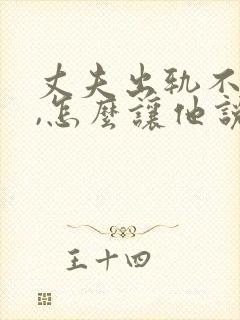 丈夫出轨不
,怎麼讓他說
王十四